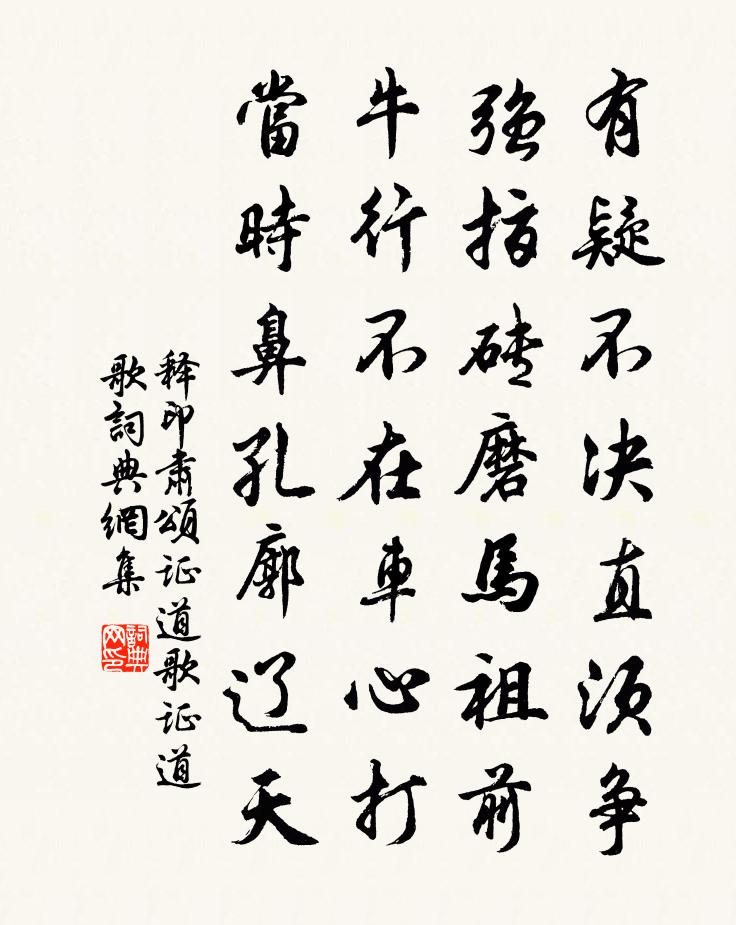 有疑不决直须争
強指磚磨馬祖前
牛行不在車心打
當時鼻孔廓辽天
释印肃頌证道歌证道
歌詞典網集
詞典网印